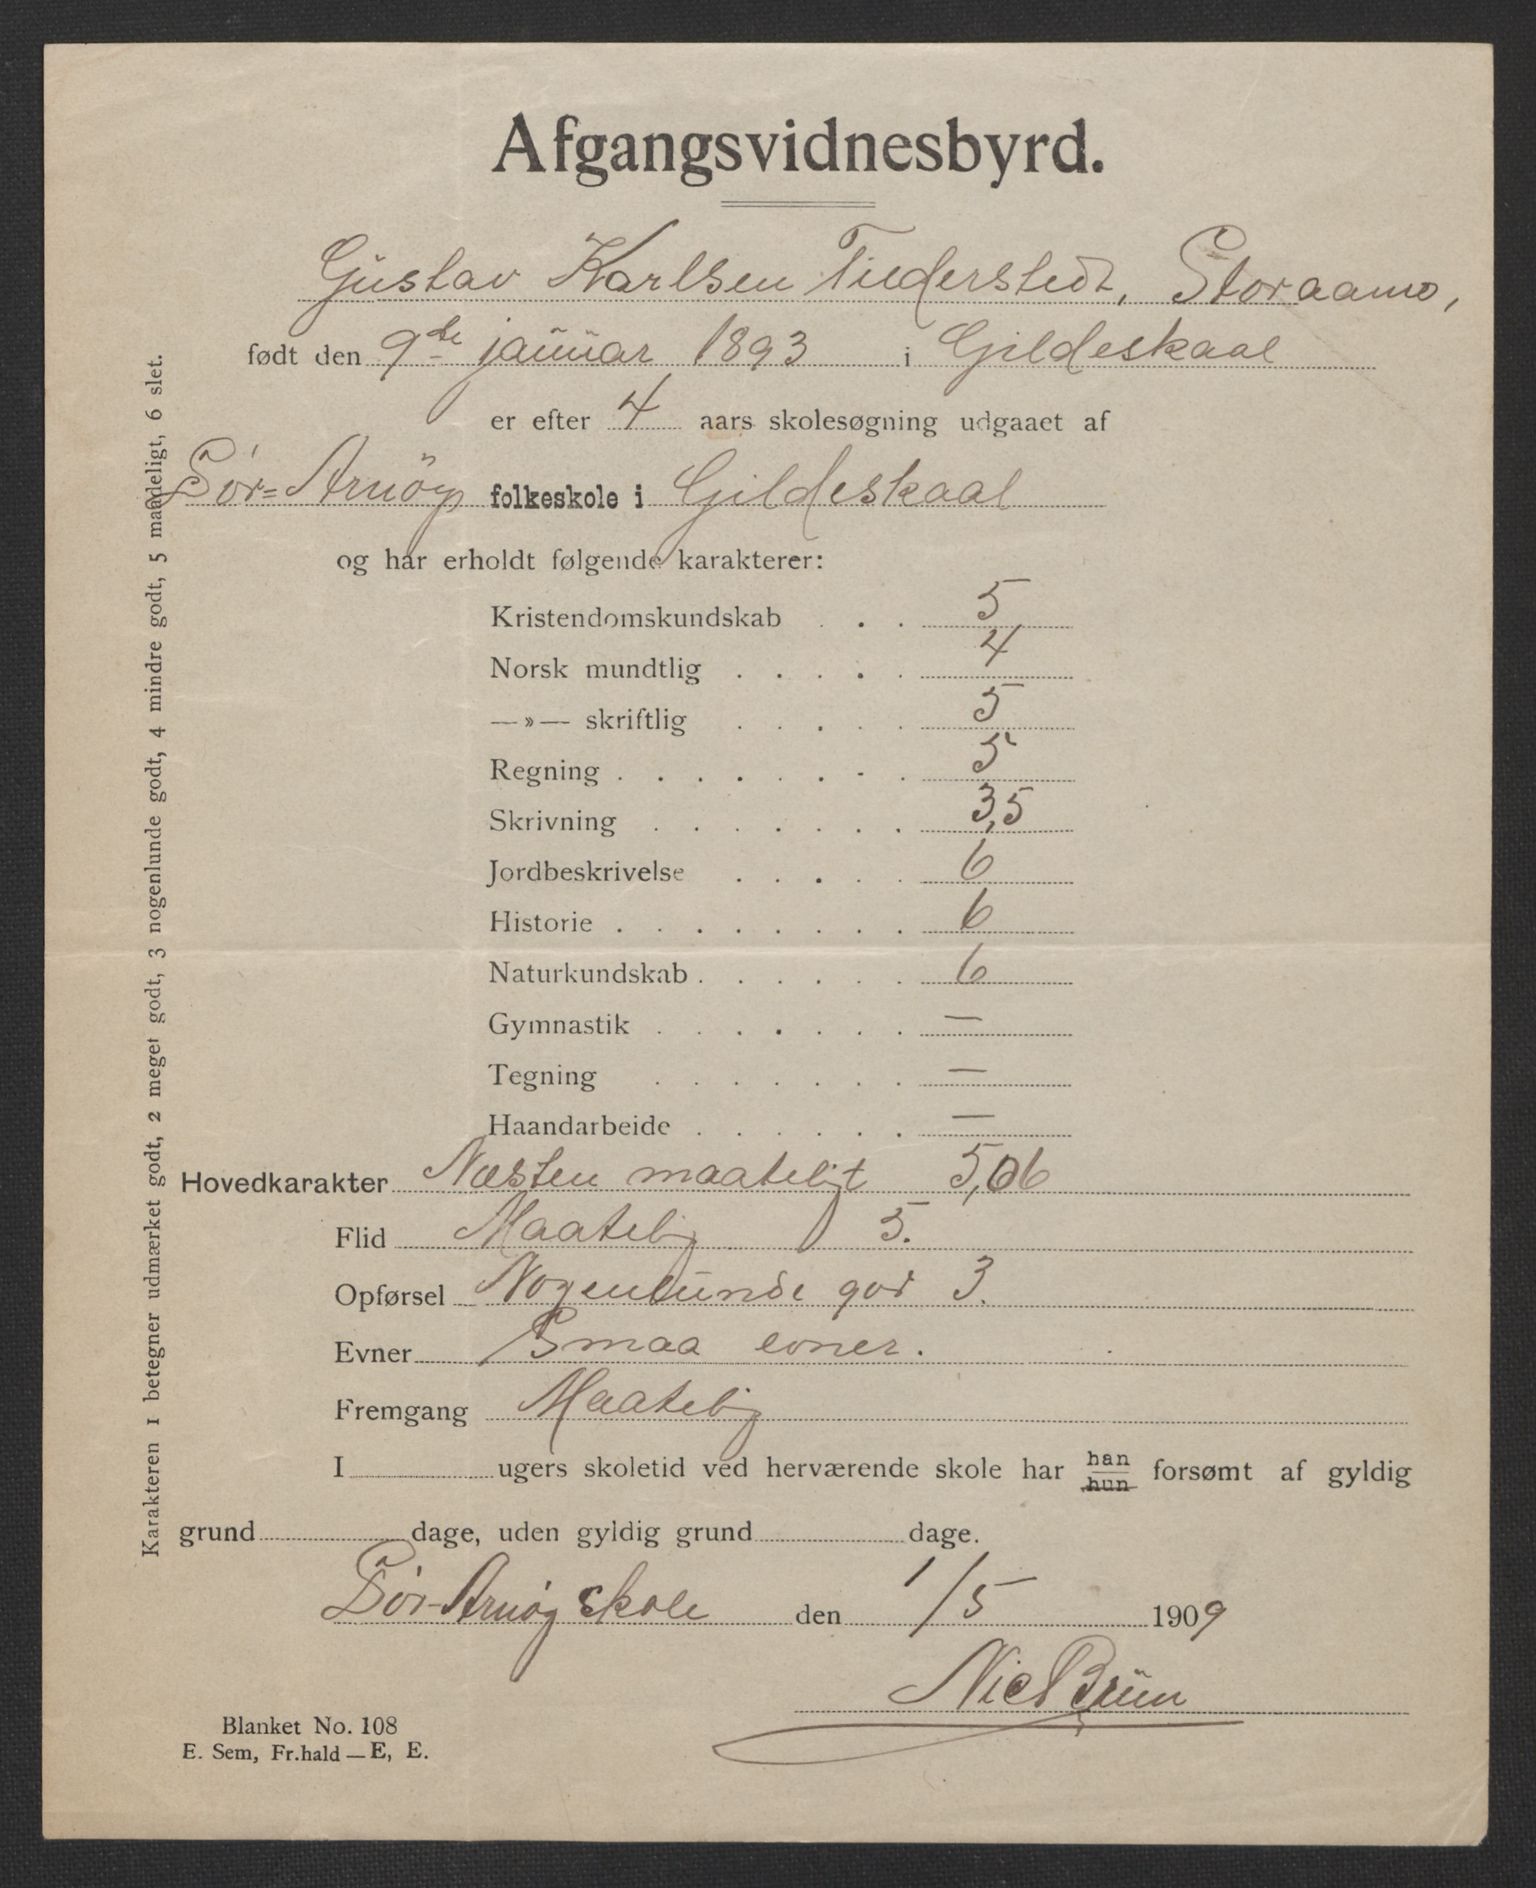 Afgangsvidnesbyrd.
Gustav Karlsen Tiederstedt, Storaamo,
født den 9de januar 1893 i Gildeskaal
er efter 4 aars skolesøgning udgaaet af
Sør=Arnöy folkeskole i Gildeskaal
og har erholdt følgende karakterer:
Kristendomskundskab . . . 5
Norsk mundtlig . . . . . 4
—»— skriftlig . . . . . 5
Regning . . . . . . . . 5
Skrivning . . . . . . . 3,5
Jordbeskrivelse . . . . . 6
Historie . . . . . . . . 6
Naturkundskab . . . . . . 6
Gymnastik . . . . . . . —
Tegning . . . . . . . —
Haandarbeide . . . . . . —
Hovedkarakter Næsten maateligt 5,06
Flid Maatelig 5.
Opførsel Nogenlunde god 3.
Evner Smaa evner.
Fremgang Maatelig
I ugers skoletid ved herværende skole har han hun forsømt af gyldig
grund dage, uden gyldig grund dage.
Sør-Arnøy skole den 1/5 1909
Nic Bruun
Blanket No. 108
E. Sem, Fr.hald — E, E.
Karakteren 1 betegner udmærket godt, 2 meget godt, 3 nogenlunde godt, 4 mindre godt, 5 maadeligt, 6 slet.